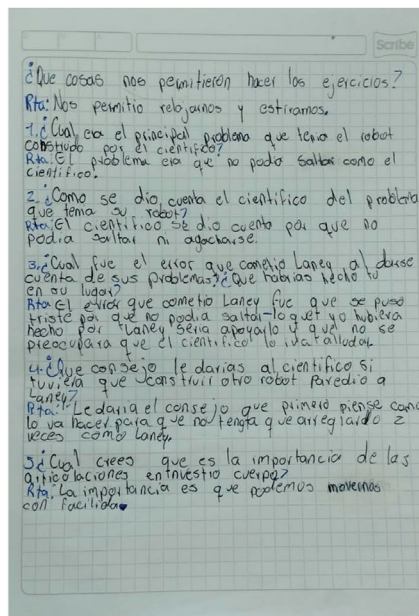 Scribe
¿Que cosas nos permitieron hacer los ejercicios?
Rta: Nos permitio relajarnos y estirarnos.
1.¿Cual era el principal problema que tenia el robot
construido por el cientifico?
Rta: El problema era que no podia saltar como el
cientifico.
2.¿Como se dio cuenta el cientifico del problema
que tenia su robot?
Rta: El cientifico se dio cuenta por que no
podia saltar ni agacharse.
3.¿Cual fue el error que cometio Laney al darse
cuenta de sus problemas?¿Que habrias hecho tu
en su lugar?
Rta: El error que cometio Laney fue que se puso
triste por que no podia saltar-lo que yo hubiera
hecho por Laney seria apoyarlo y que no se
preocupara que el cientifico lo iva a
4.¿Que consejo le darias al cientifico si
tuviera que construir otro robot Paredio a
Laney?
Rta: Le daria el consejo que primero piense como
lo va hacer para que no tenga que arreglarlo 2
veces como Laney.
5¿Cual crees que es la importancia de las
articolaciones en nuestro cuerpo?
Rta: La importancia es que podemos movernos
con facilida.